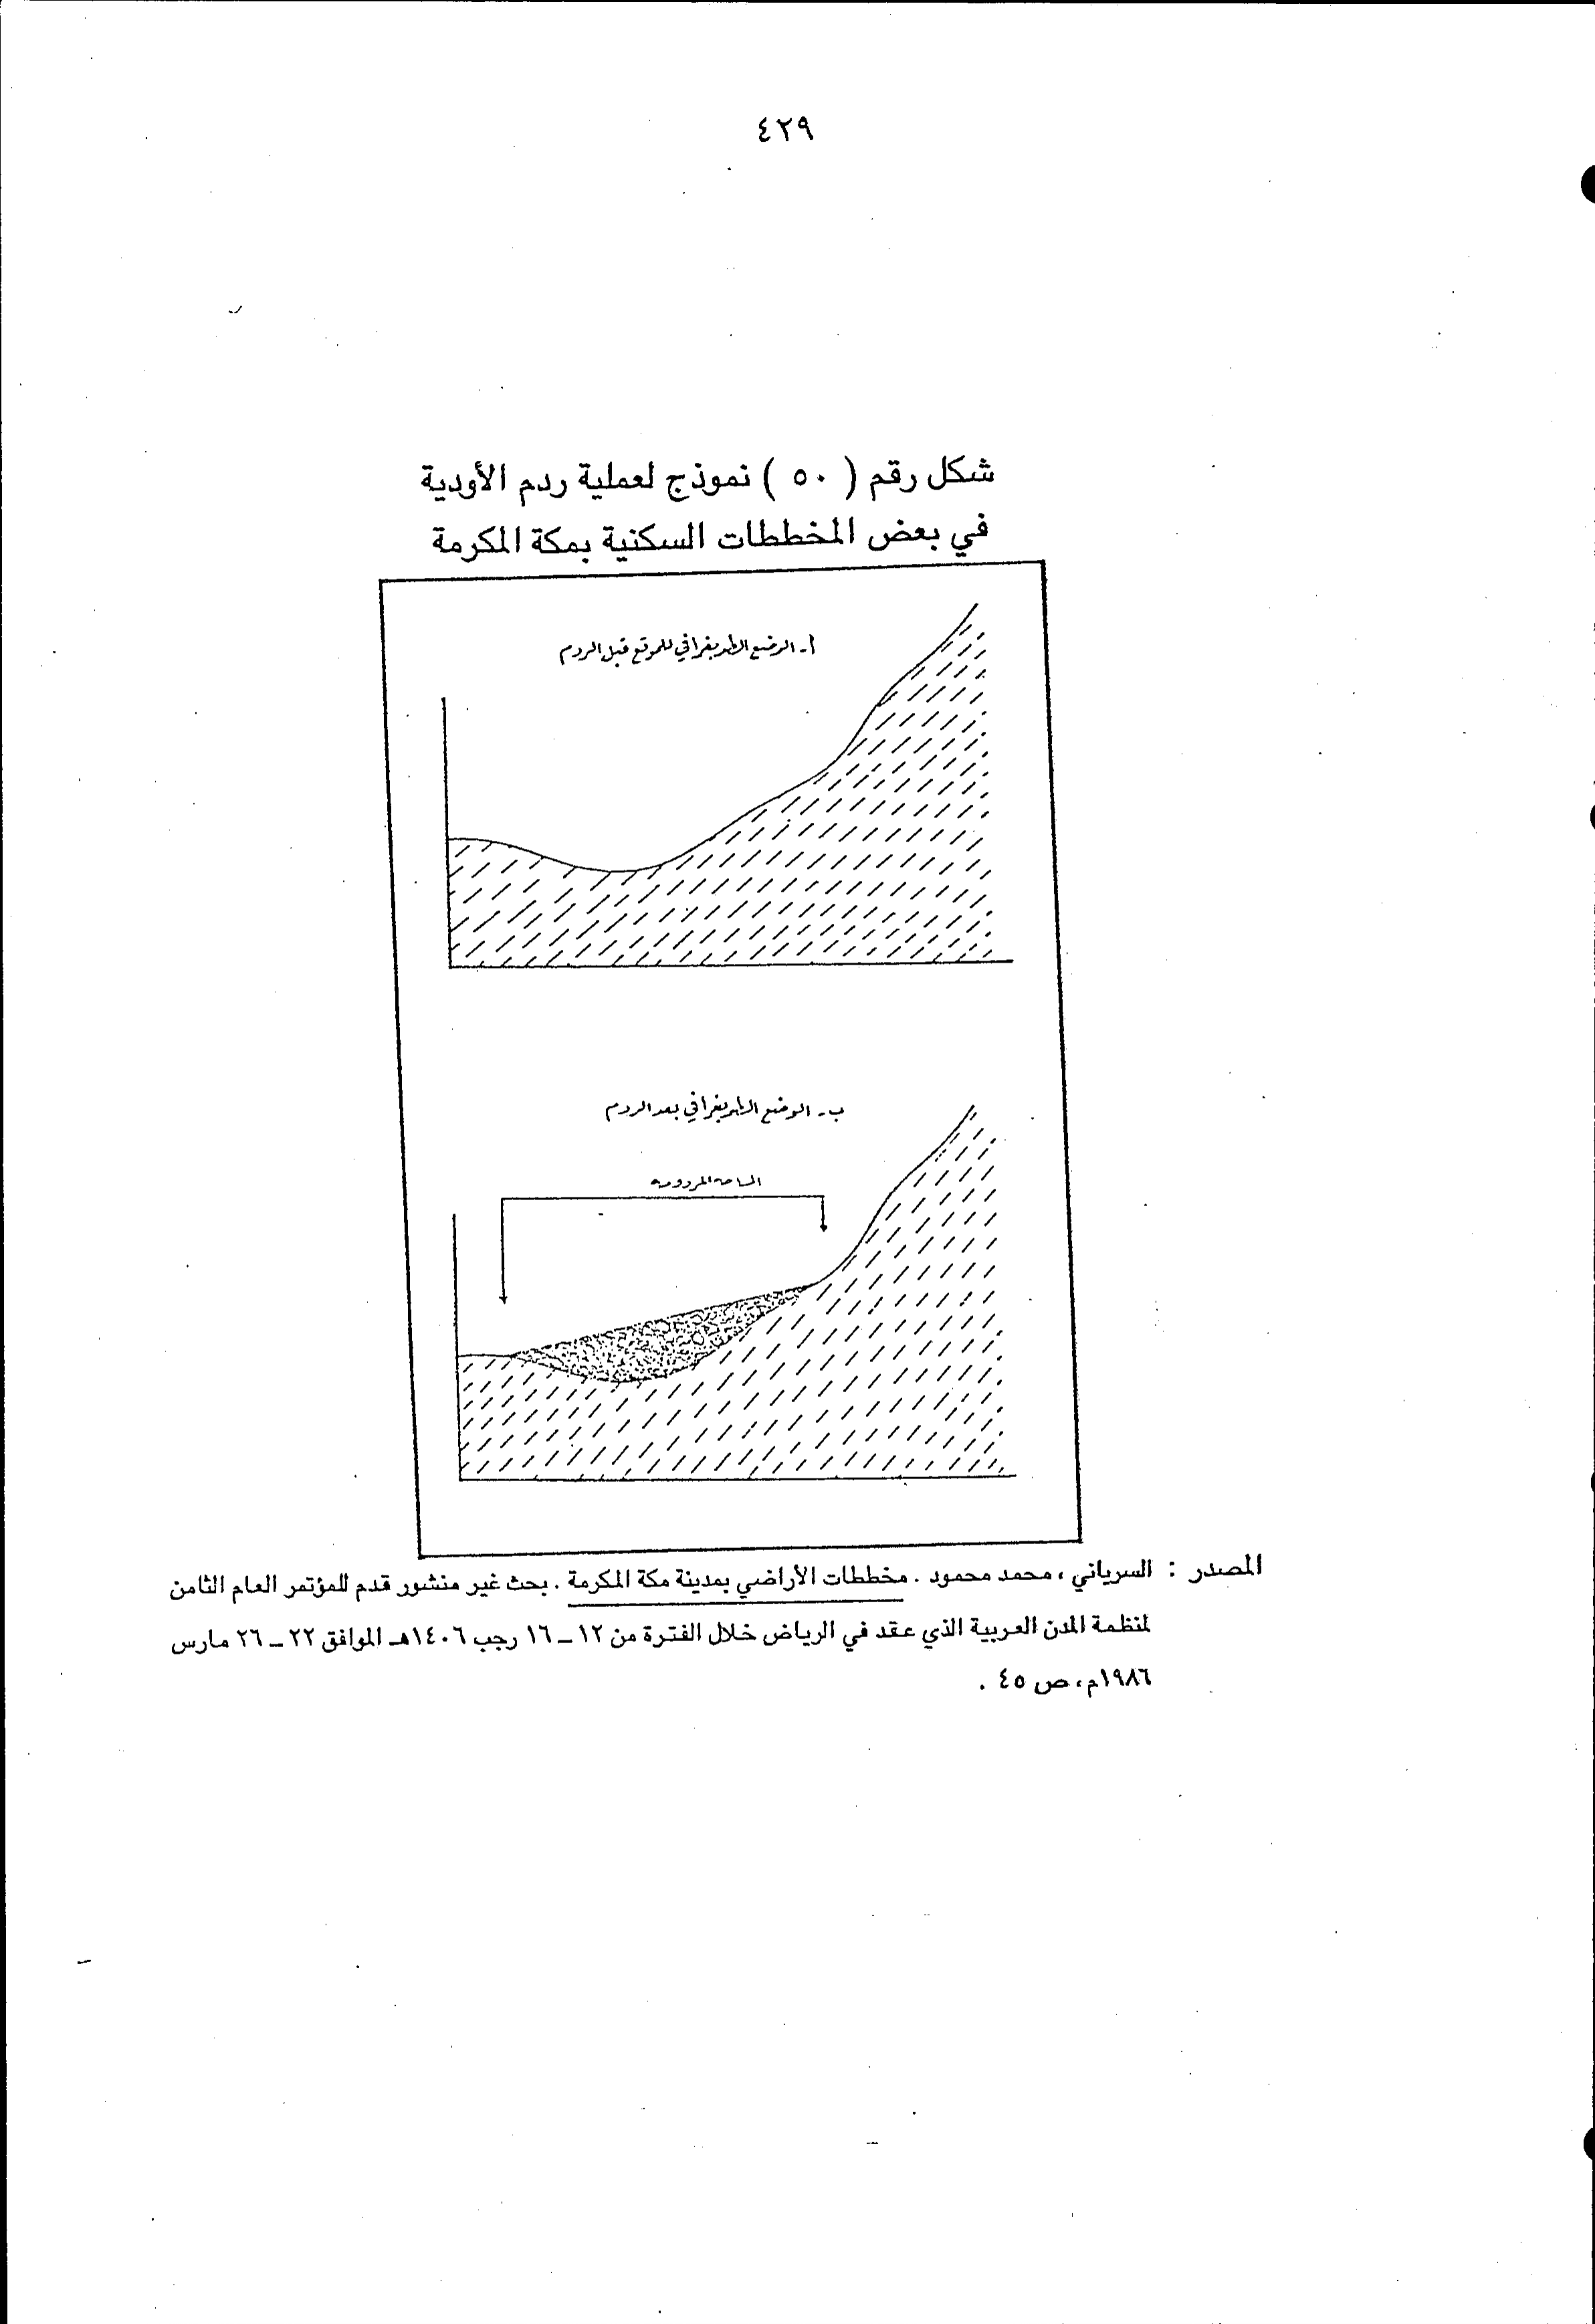 ٤٢٩
شكل رقم ( ٥٠ ) نموذج لعملية ردم الأودية
في بعض المخططات السكنية بمكة المكرمة
أ- الوضع الطبوغرافي للموقع قبل الردم
ب- الوضع الطبوغرافي بعد الردم
المساحة المردومة
المصدر : السرياني ، محمد محمود . مخططات الأراضي بمدينة مكة المكرمة . بحث غير منشور قدم للمؤتمر العام الثامن
لمنظمة المدن العربية الذي عقد في الرياض خلال الفترة من ١٢ – ١٦ رجب ١٤٠٦هـ الموافق ٢٢ – ٢٦ مارس
١٩٨٦م ، ص ٤٥ .